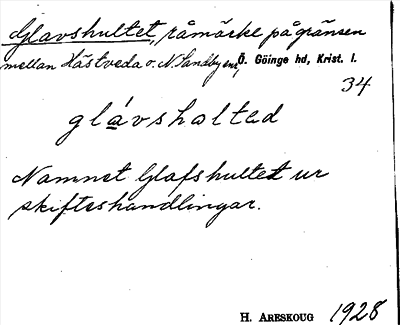 Glavshultet, råmärke på gränsen
mellan Hästveda o. N. Sandby em, Ö. Göinge hd, Krist. l.
34
glávshaltad
Namnet Glafshultet ur
skifteshandlingar.
H. ARESKOUG 1928